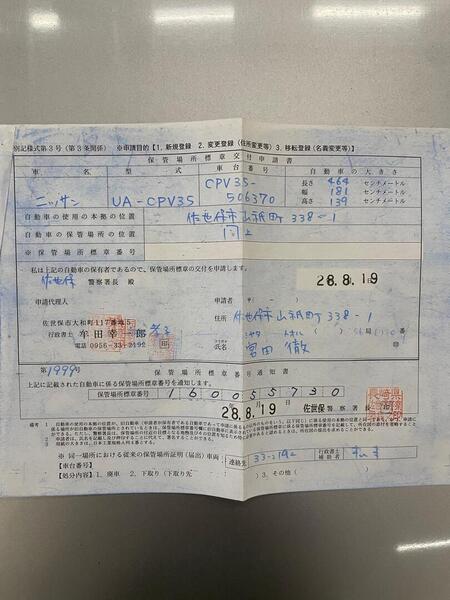 別記様式第3号（第3条関係） ※申請目的【1．新規登録 2．変更登録（住所変更等）3．移転登録（名義変更等）】
保管場所標章交付申請書
車名 型式 車台番号 自動車の大きさ
ニッサン UA-CPV35 CPV35-506370
長さ 464 センチメートル
幅 181 センチメートル
高さ 139 センチメートル
自動車の使用の本拠の位置 佐世保市山祇町338-1
自動車の保管場所の位置 同上
※保管場所標章番号
私は上記の自動車の保有者であるので、保管場所標章の交付を申請します。
佐世保 警察署長 殿 28.8.19
申請代理人 申請者 〒（ － ）
住所 佐世保市山祇町338-1
佐世保市大和町117番地5
行政書士 牟田幸一郎 印
電話 0956-33-2192
フリガナ ミヤタ トオル
氏名 宮田 徹
第1999号 保管場所標章番号通知書
上記に記載された自動車に係る保管場所標章番号を通知します。
保管場所標章番号 160055730
28.8.19 佐世保警察署長
備考
※ 同一場所における従来の保管場所証明（届出）車両 連絡先 33-2192 行政書士 補助者
【車台番号】
【処分内容】1．廃車 2．下取り（下取り先 ）3．その他（ ）